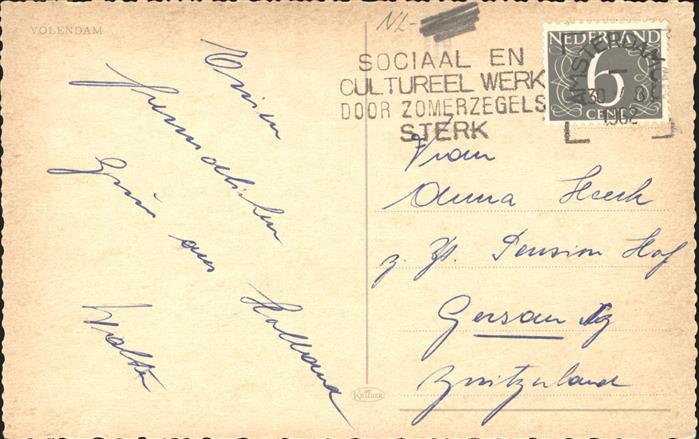 VOLENDAM
NL-
SOCIAAL EN
CULTUREEL WERK
DOOR ZOMERZEGELS
STERK
NEDERLAND
6
CENT
AMSTERDAM
30
1962
Einen
freundlichen
Gruss aus
Holland
Walter
Frau
Anna
z. Zt. Pension Hof
Gersau
Switzerland
KRUGER